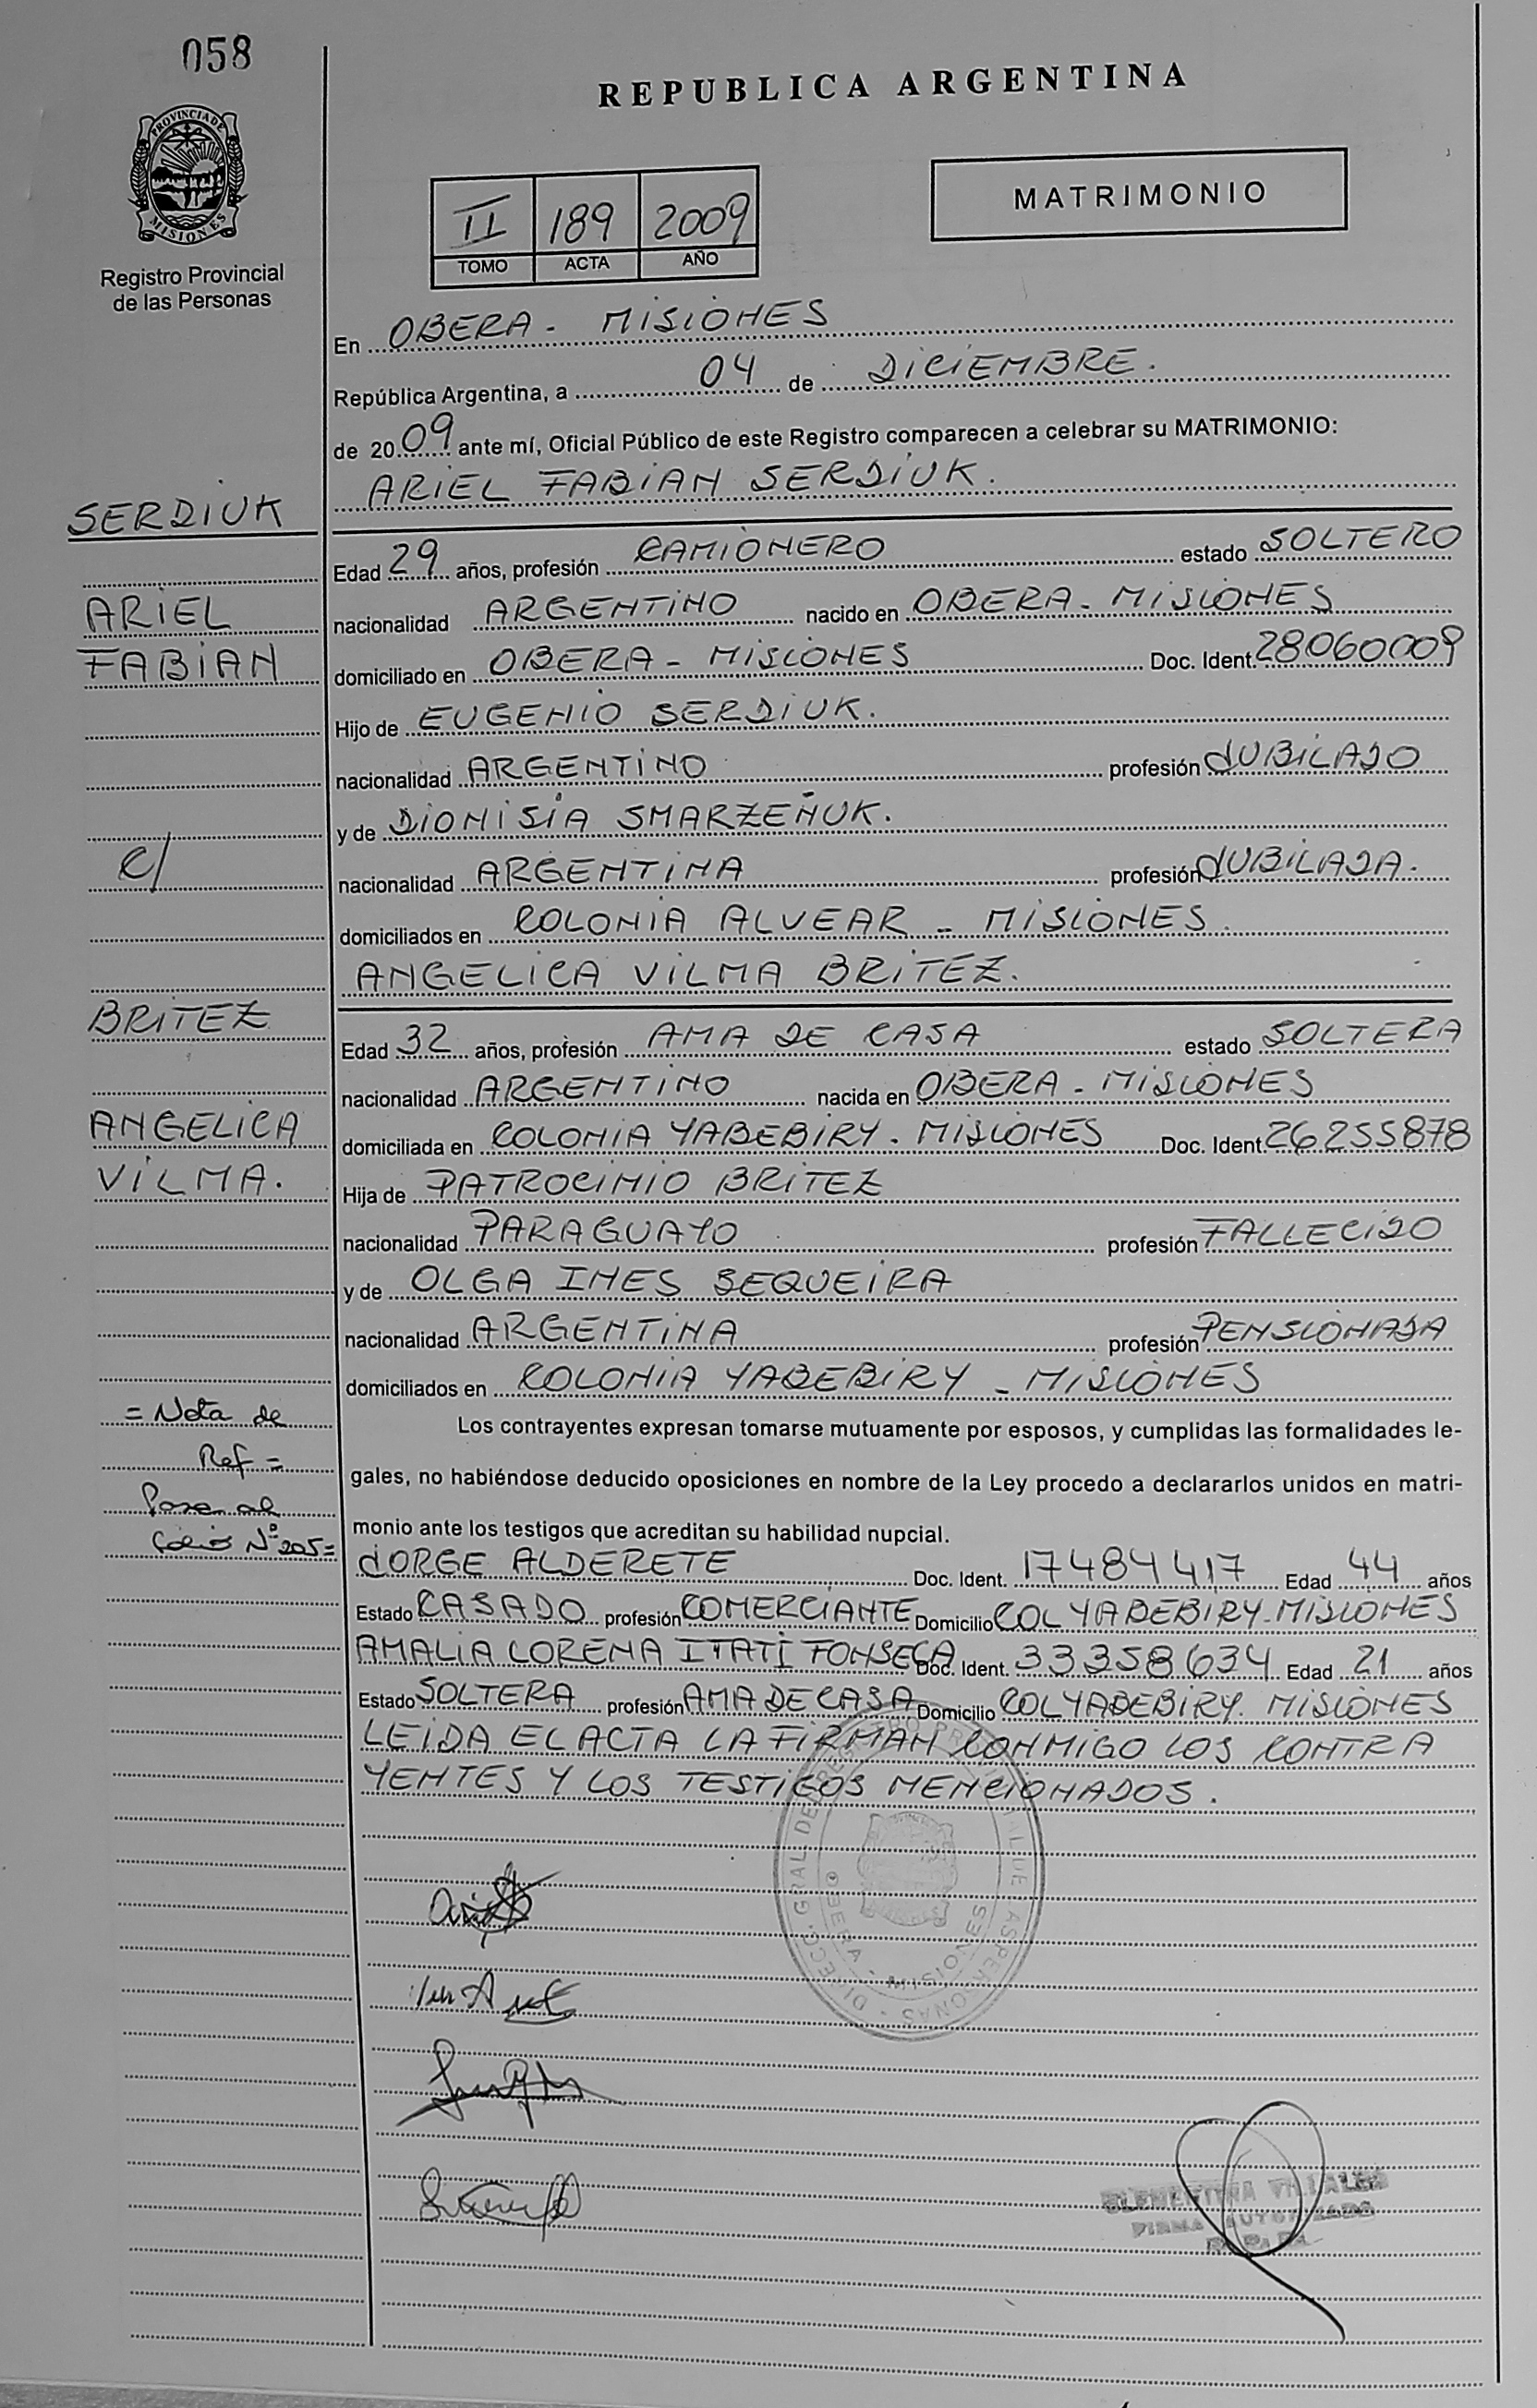 058
REPUBLICA ARGENTINA
PROVINCIA DE
MISIONES
Registro Provincial
de las Personas
II 189 2009
TOMO ACTA AÑO
MATRIMONIO
En OBERA - MISIONES
República Argentina, a 04 de DICIEMBRE.
de 2009 ante mí, Oficial Público de este Registro comparecen a celebrar su MATRIMONIO:
ARIEL FABIAN SERDIUK.
SERDIUK
Edad 29 años, profesión CAMIONERO estado SOLTERO
ARIEL
nacionalidad ARGENTINO nacido en OBERA - MISIONES
FABIAN
domiciliado en OBERA - MISIONES Doc. Ident. 28060009
Hijo de EUGENIO SERDIUK.
nacionalidad ARGENTINO profesión JUBILADO
y de DIONISIA SMARZEÑUK.
c/
nacionalidad ARGENTINA profesión JUBILADA.
domiciliados en COLONIA ALVEAR - MISIONES.
ANGELICA VILMA BRITEZ.
BRITEZ
Edad 32 años, profesión AMA DE CASA estado SOLTERA
nacionalidad ARGENTINO nacida en OBERA - MISIONES
ANGELICA
domiciliada en COLONIA YABEBIRY - MISIONES Doc. Ident. 26255878
VILMA.
Hija de PATROCINIO BRITEZ
nacionalidad PARAGUAYO profesión FALLECIDO
y de OLGA INES SEQUEIRA
nacionalidad ARGENTINA profesión PENSIONADA
domiciliados en COLONIA YABEBIRY - MISIONES
= Nota de
Ref =
Pase al
Folio Nº 205 =
Los contrayentes expresan tomarse mutuamente por esposos, y cumplidas las formalidades le-
gales, no habiéndose deducido oposiciones en nombre de la Ley procedo a declararlos unidos en matri-
monio ante los testigos que acreditan su habilidad nupcial.
JORGE ALDERETE Doc. Ident. 17484417 Edad 44 años
Estado CASADO profesión COMERCIANTE Domicilio COL YABEBIRY - MISIONES
AMALIA LORENA ITATI FONSECA Doc. Ident. 33358634 Edad 21 años
Estado SOLTERA profesión AMA DE CASA Domicilio COL YABEBIRY. MISIONES
LEIDA EL ACTA LA FIRMAN CONMIGO LOS CONTRA
YENTES Y LOS TESTIGOS MENCIONADOS.
DIRECC. GRAL. DE REGISTRO PROVINCIAL DE LAS PERSONAS
OBERA - MISIONES
CLEMENTINA VILLALBA
FIRMA AUTORIZADA